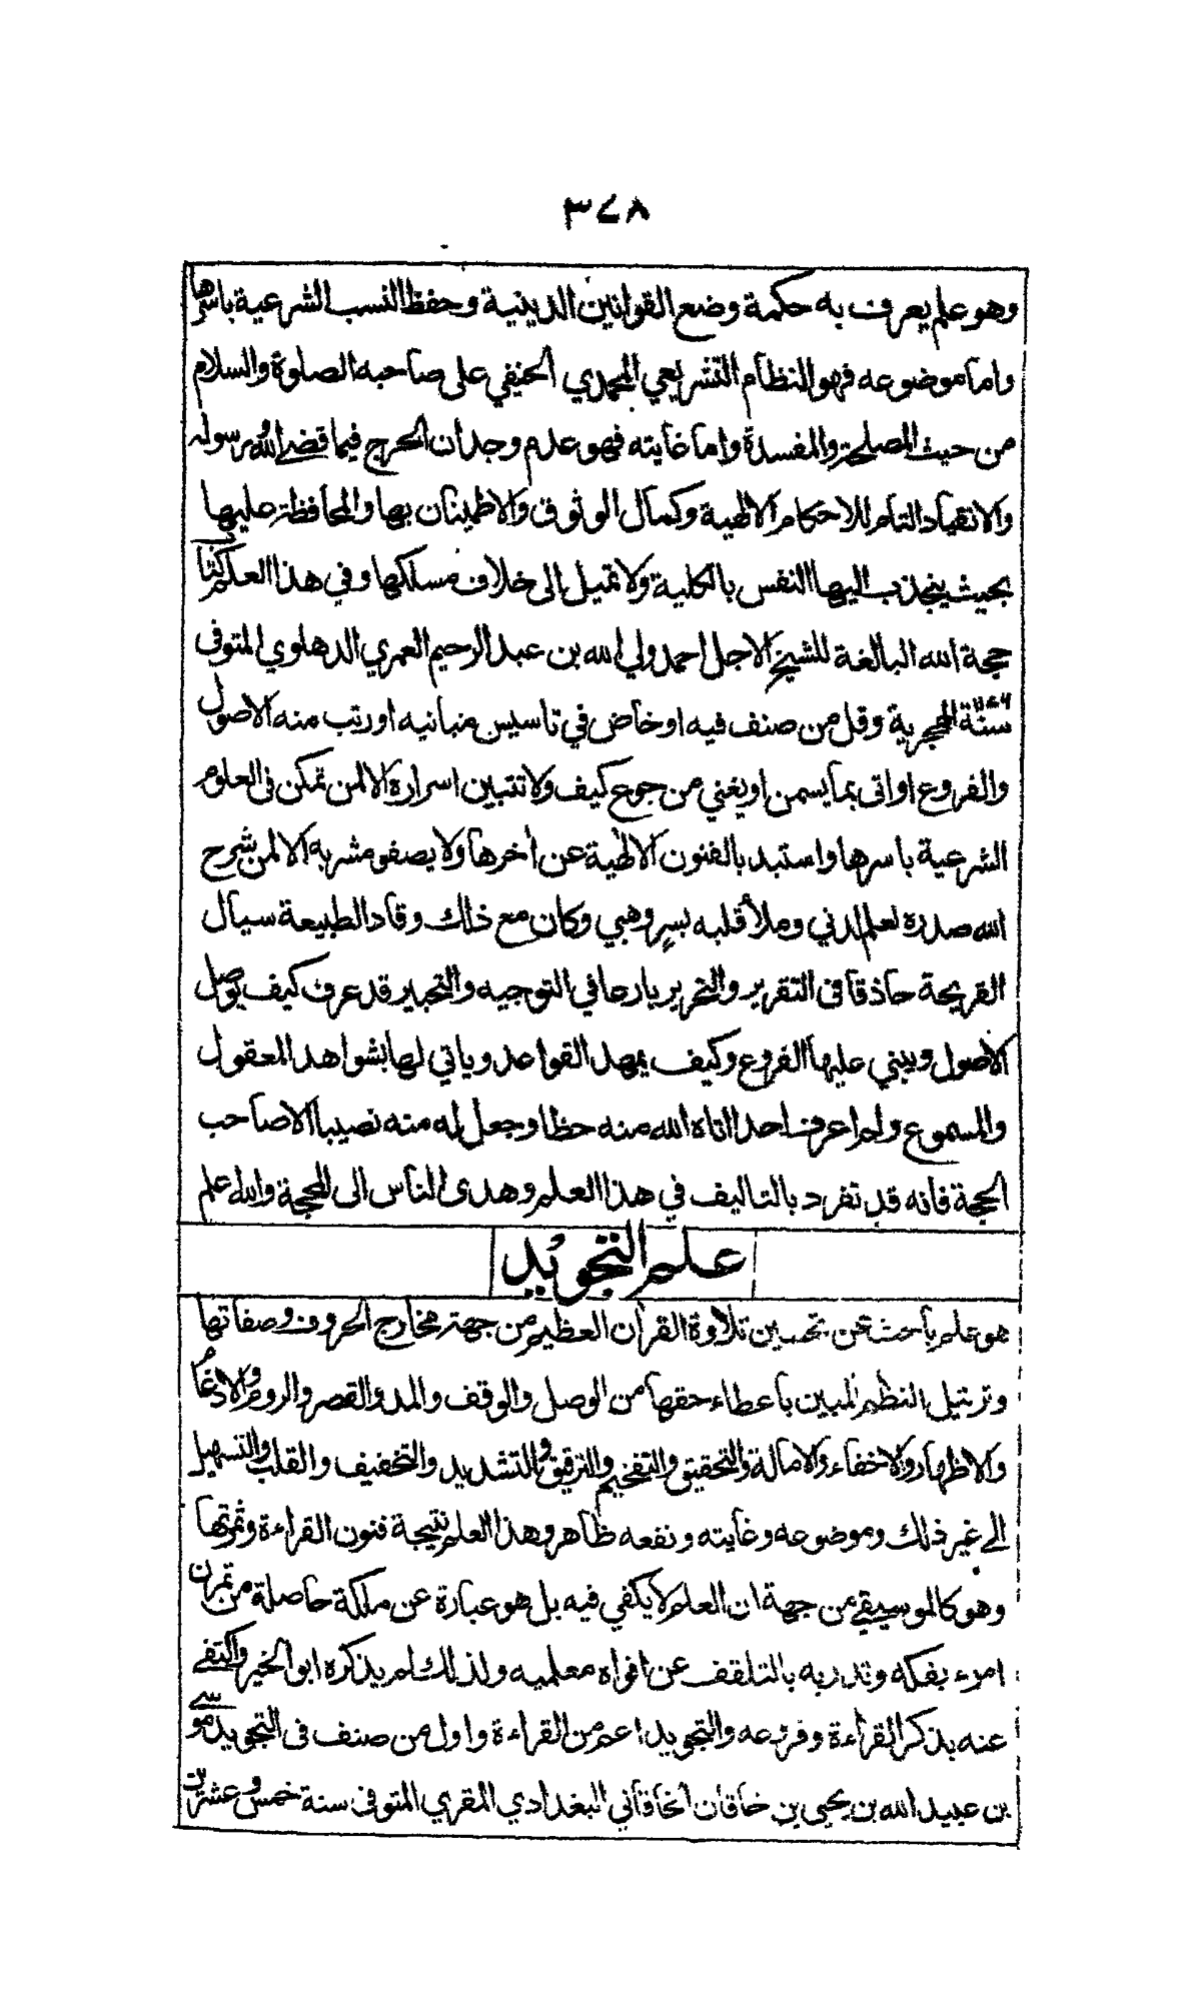 ٣٤٨
وهو علم يعرف به حكمة وضع القوانين الدينية وحفظ النسب الشرعية باسرها
واما موضوعه فهو النظام التشريعي المحمدي الحنيفي على صاحبه الصلوة والسلام
من حيث المصلحة والمفسدة واما غايته فهو عدم وجدان الحرج فيما قضى الله ورسوله
والانقياد التام للاحكام الالهية وكمال الوثوق والاطمينان بها والمحافظة عليها
بحيث ينجذب اليها النفس بالكلية ولا تميل الى خلاف مسلكها وفي هذا العلم كتاب
حجة الله البالغة للشيخ الاجل احمد ولي الله بن عبد الرحيم العمري الدهلوي المتوفى
سنة الهجرية وقل من صنف فيه او خاض في تاسيس مبانيه او رتب منه الاصول
والفروع او اتى بما يسمن او يغني من جوع كيف ولا تتبين اسراره الا لمن تمكن فى العلوم
الشرعية باسرها واستبد بالفنون الالهية عن أخرها ولا يصفو مشربه الا لمن شرح
الله صدره لعلم لدني وملأ قلبه بسر وهبي وكان مع ذلك وقاد الطبيعة سيال
القريحة حاذقا فى التقرير والتحرير بارعا في التوجيه والتحبير قد عرف كيف يوصل
الاصول ويبني عليها الفروع وكيف يمهد القواعد وياتي لها بشواهد المعقول
والمسموع ولم اعرف احدا اتاه الله منه حظا وجعل له منه نصيبا الا صاحب
الحجة فانه قد تفرد بالتاليف في هذا العلم وهدى الناس الى المحجة والله علم
علم التجويد
هو علم باحث عن تحسين تلاوة القرأن العظيم من جهة مخارج الحروف وصفاتها
وترتيل النظم المبين باعطاء حقها من الوصل والوقف والمد والقصر والروم والادغام
والاظهار والاخفاء والامالة والتحقيق والتفخيم والترقيق والتشديد والتخفيف والقلب والتسهيل
الى غير ذلك وموضوعه وغايته ونفعه ظاهر وهذا العلم نتيجة فنون القراءة وثمرتها
وهو كالموسيقى من جهة ان العلم لا يكفي فيه بل هو عبارة عن ملكة حاصلة من تمرن
امرء بفكه وتدربه بالتلقف عن افواه معلميه ولذلك لم يذكره ابو الخير واكتفى
عنه بذكر القراءة وفروعه والتجويد اعم من القراءة واول من صنف فى التجويد موسى
بن عبيد الله بن يحيى بن خاقان الخاقاني البغدادي المقري المتوفى سنة خمس وعشرين